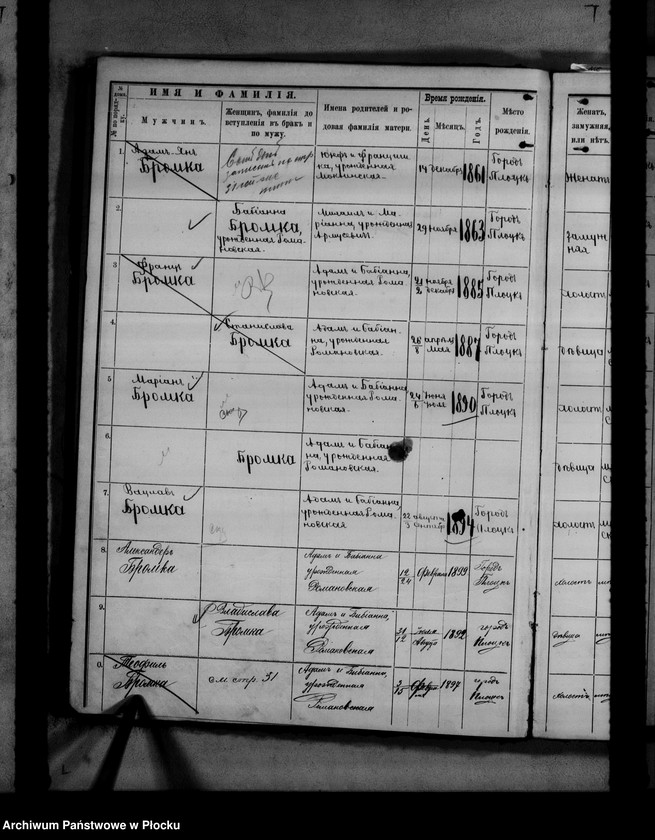 № дома.
№ по порядку.
ИМЯ И ФАМИЛІЯ.
Мужчинъ.
Женщинъ, фамилія до
вступленія въ бракъ и
по мужу.
Имена родителей и ро-
довая фамилія матери.
Время рожденія.
День.
Мѣсяцъ.
Годъ.
Мѣсто
рожденія.
Женатъ,
замужняя,
или нѣтъ.
1.
Адамъ Янъ
Бромка
Юзефъ и Францишка,
урожденная
14 декабря 1861
Городъ
Плоцкъ
Женатъ
2.
Бабіанна
Бромка,
урожденная Рома-
новская.
Михаилъ и Ма-
ріанна, урожденная
29 ноября 1863
Городъ
Плоцкъ
Замуж
няя
3
Францъ
Бромка
Адамъ и Бабіанна,
урожденная Рома
новская.
21 ноября
2 декабря
1885
Городъ
Плоцкъ
холостъ
4.
Станислава
Бромка
Адамъ и Бабіан-
на, урожденная
Романовская.
26 апрѣля
8 мая
1887
Городъ
Плоцкъ
дѣвица
5
Маріанъ
Бромка
Адамъ и Бабіанна,
урожденная Рома
новская.
24 іюня
6 іюля
1890
Городъ
Плоцкъ
холостъ
6.
Бромка
Адамъ и Бабіан
на, урожденная
Романовская.
дѣвица
7.
Вацлавъ
Бромка
Адамъ и Бабіанна,
урожденная Рома
новская
22 августа
3 сентября
1894
Городъ
Плоцкъ
холостъ
8.
Александеръ
Бромка
Адамъ и Бабіанна
урожденная
Романовская
12
24
Февраля 1899
Городъ
Плоцкъ
холостъ
9.
Владислава
Бромка
Адамъ и Бабіанна,
урожденная
Романовская
31
12
Іюля
Августа
1892
городъ
Плоцкъ
дѣвица
Теофиль
Бромка
см. стр. 31
Адамъ и Бабіанна,
урожденная
Романовская
3
15
1897
городъ
Плоцкъ
холостъ
Archiwum Państwowe w Płocku